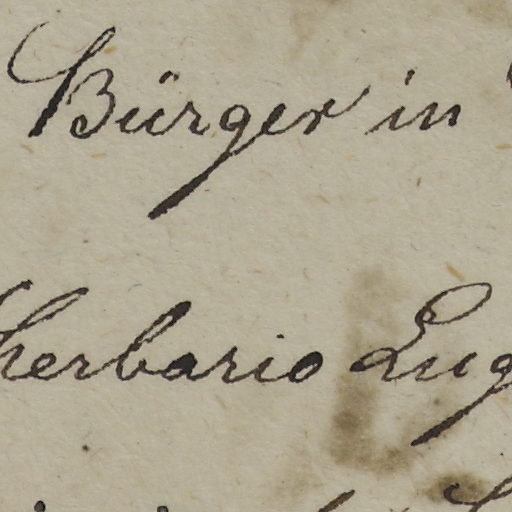 Bürger in
herbario Lug